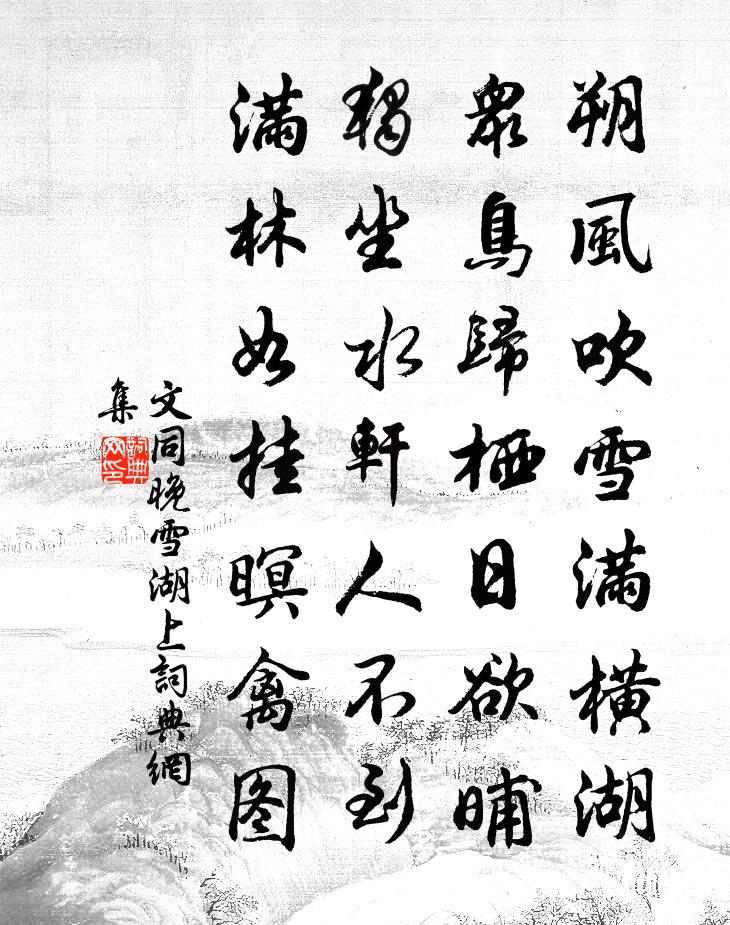 朔風吹雪滿橫湖
衆鳥歸栖日欲晡
獨坐水軒人不到
滿林如挂暝禽图
文同晚雪湖上詞典網
集
詞典
网印